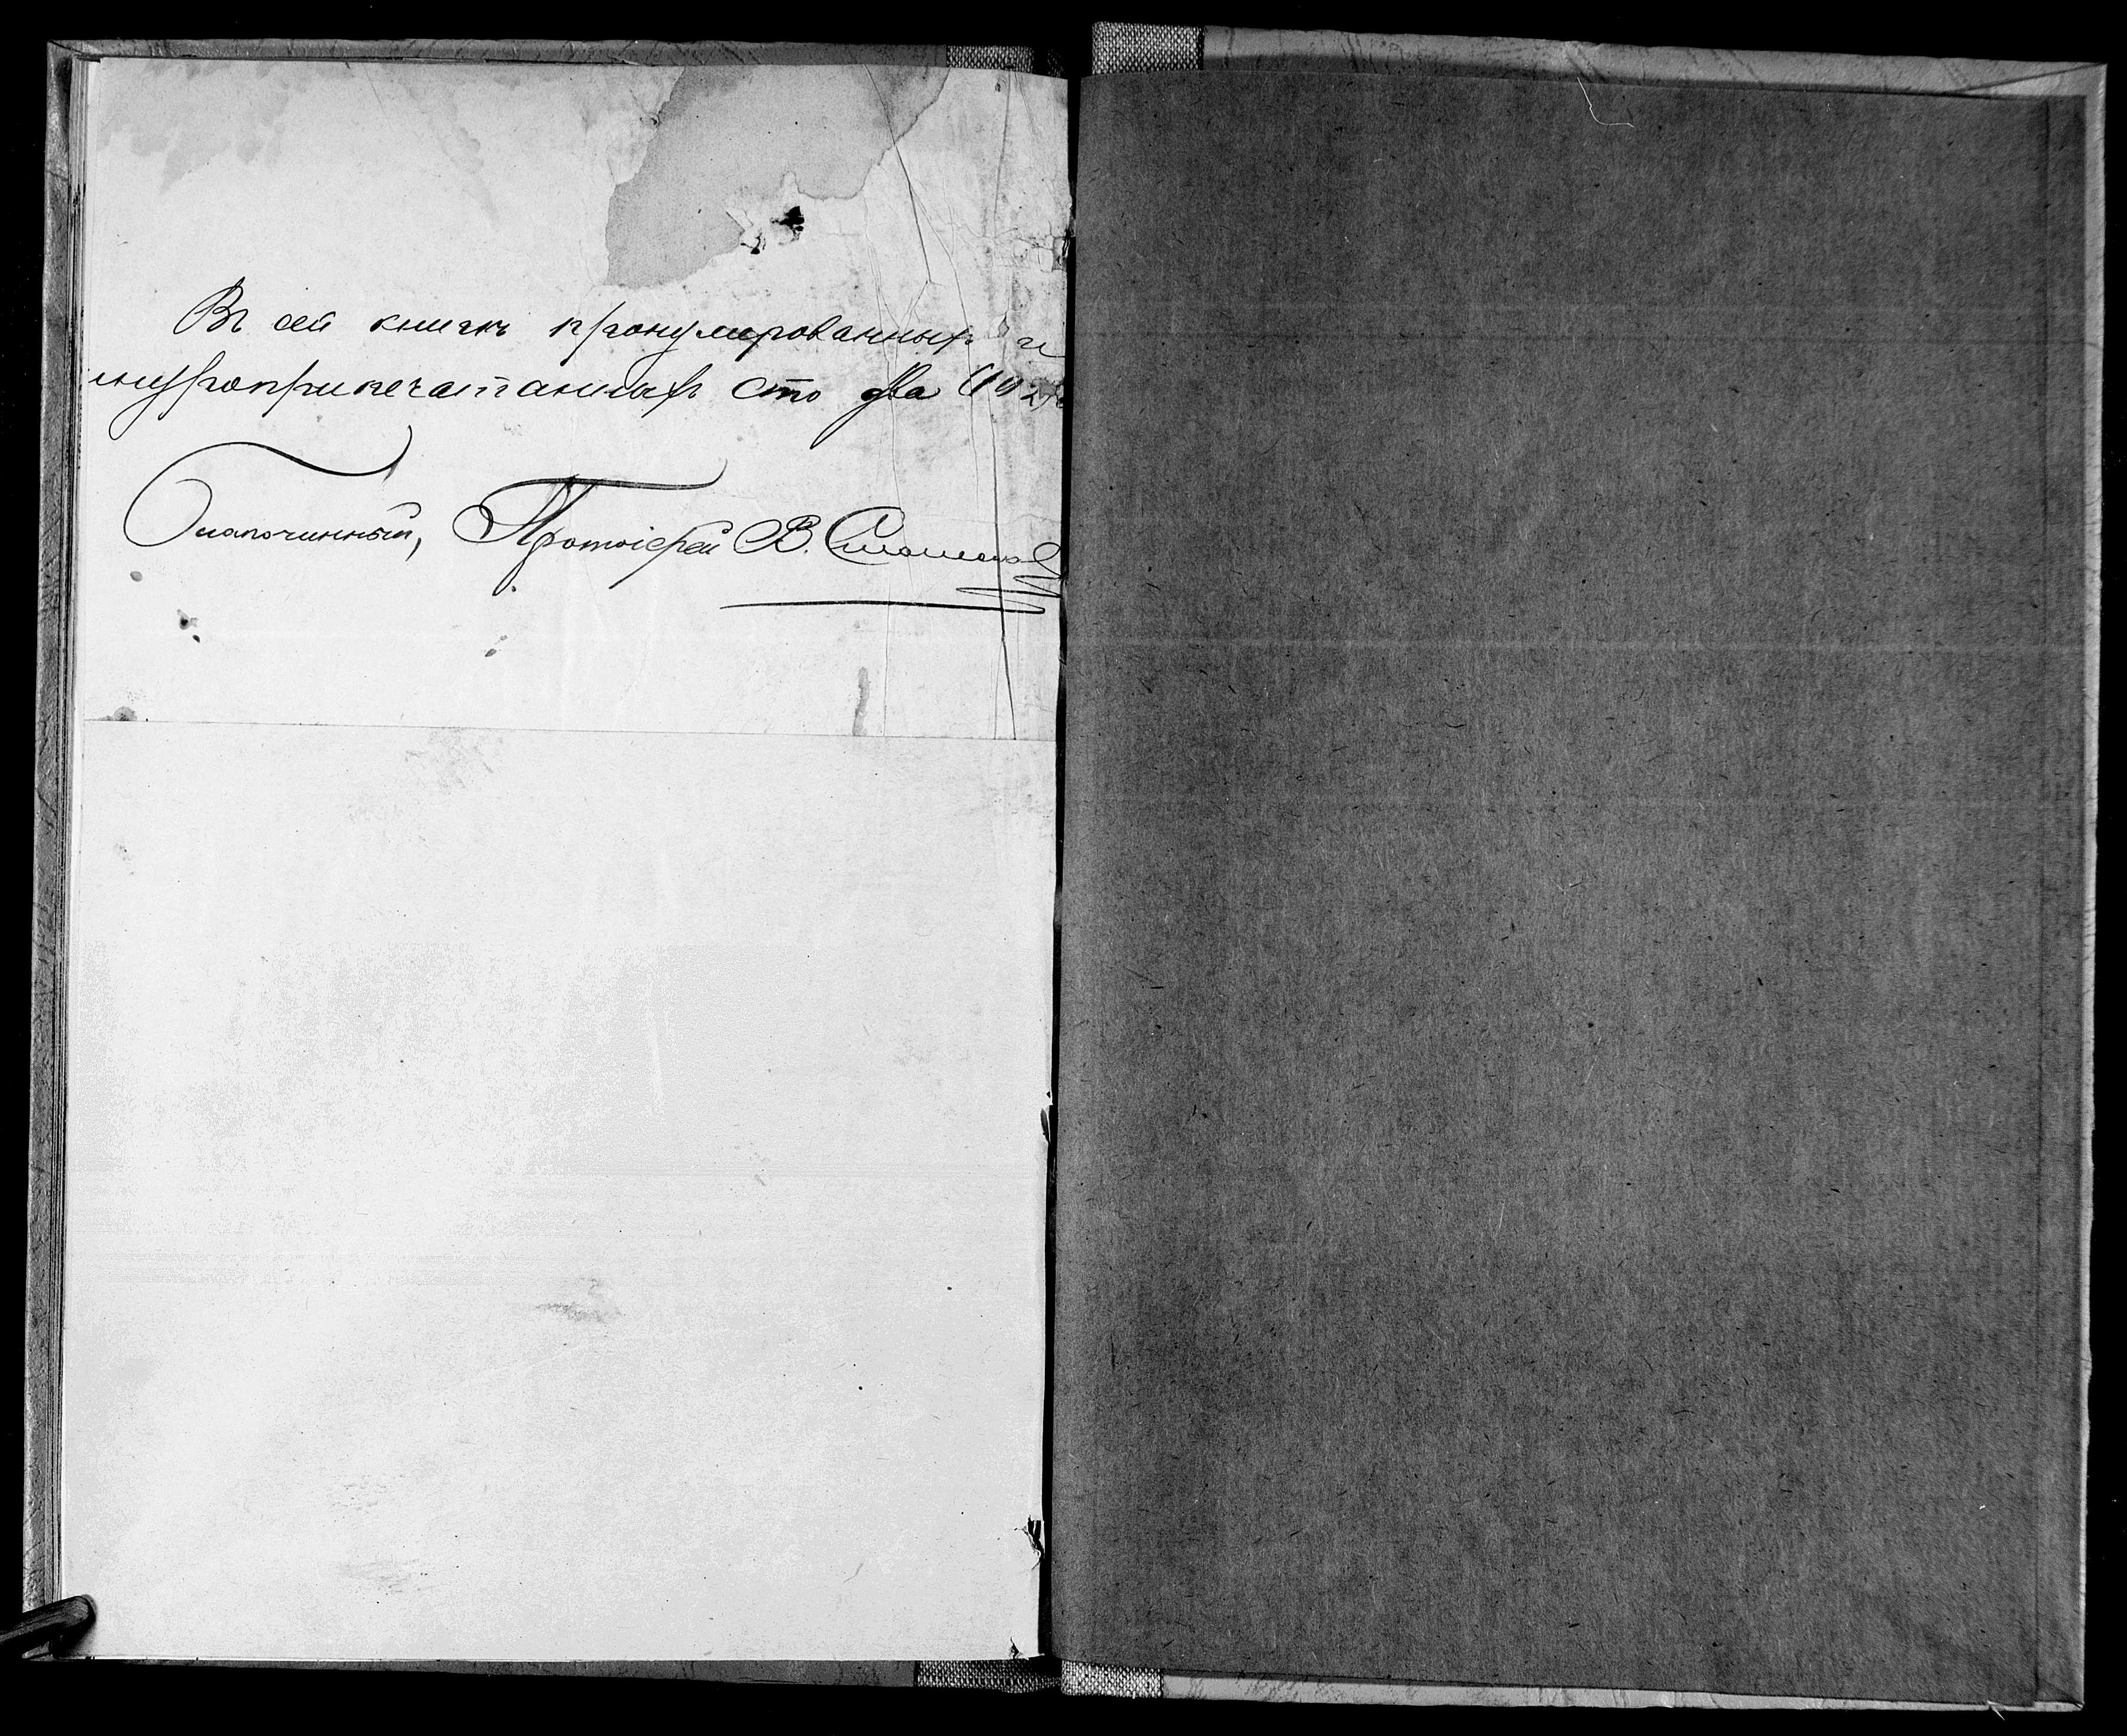 Въ сей книгѣ пронумерованныхъ и
шнуроприпечатанныхъ сто два (102)
Благочинный, Протоіерей В.